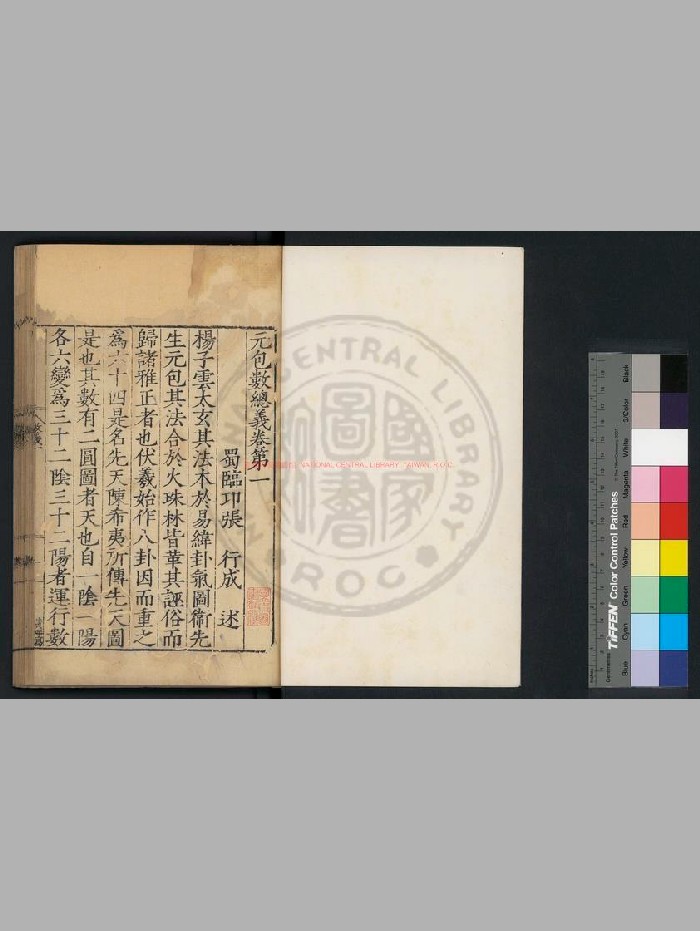 元包數總義卷第一
蜀臨卭張 行成 述
楊子雲太玄其法本於易緯卦氣圖衛先
生元包其法合於火珠林皆革其誣俗而
歸諸雅正者也伏羲始作八卦因而重之
爲六十四是名先天陳希夷所傳先天圖
是也其數有二圓圖者天也自一陰一陽
各六變爲三十二陰三十二陽者運行數
NATIONAL CENTRAL LIBRARY, TAIWAN, R.O.C.
CENTRAL LIBRARY
ROC
國家圖書館
TIFFEN Color Control Patches
Blue
Cyan
Green
Yellow
Red
Magenta
White
3/Color
Black